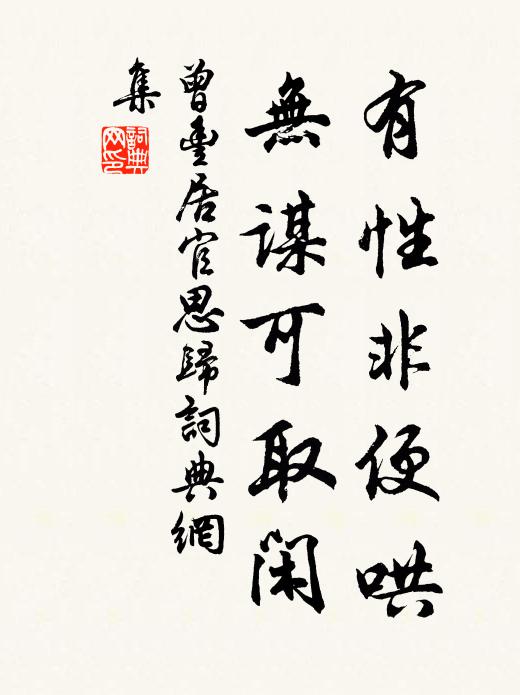 有性非便哄
無謀可取閑
曾豐居官思歸詞典網
集
詞典网印